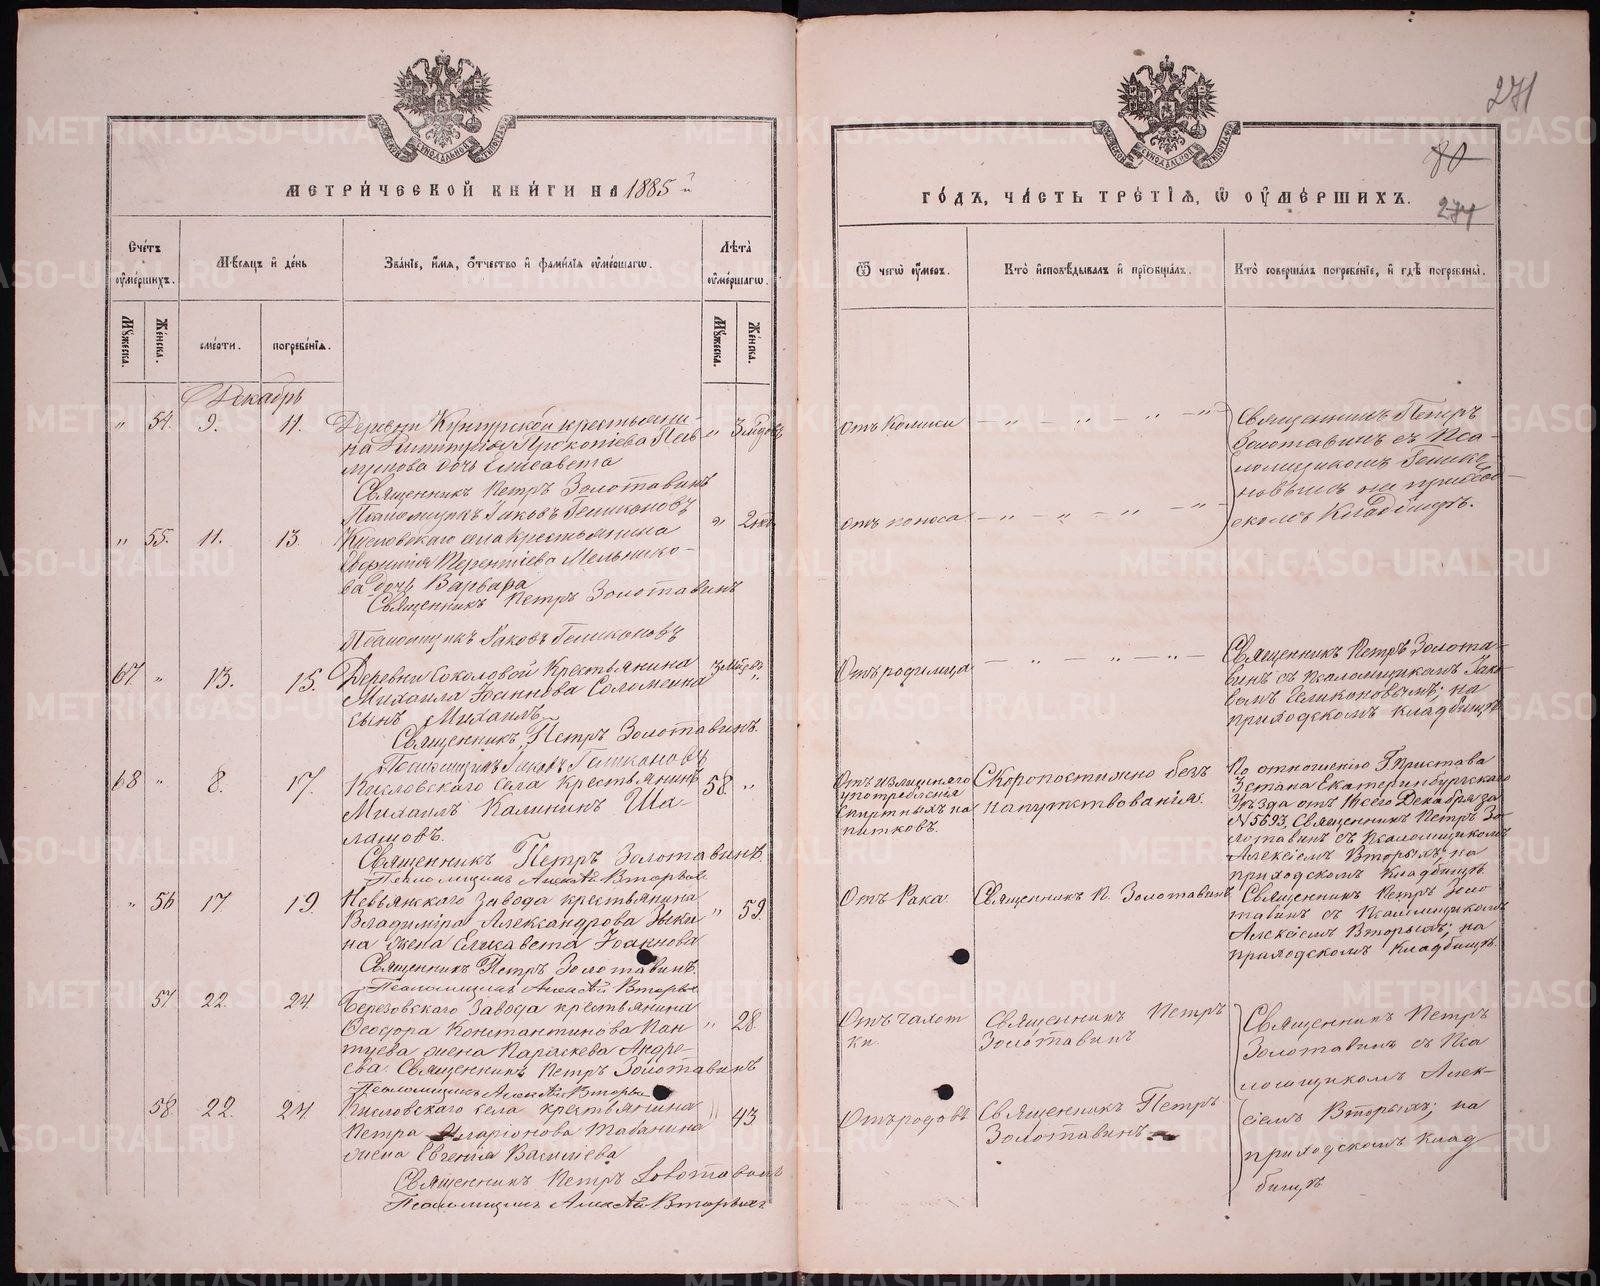 271
80
274
МЕТРИЧЕСКОЙ КНИГИ НА 1885й
ГОДЪ, ЧАСТЬ ТРЕТІЯ, Ѡ ОУМЕРШИХЪ.
Счетъ оумершихъ.
Мѣсяцъ и день
Званіе, имя, отчество и фамилія оумершагѡ.
Лѣта оумершагѡ.
Ѿ чегѡ оумеръ.
Кто исповѣдывалъ и пріобщалъ.
Кто совершалъ погребеніе, и гдѣ погребены.
Мужеска.
Женска.
смерти.
погребенія.
Мужеска.
Женска.
Декабрь
" 54. 9. 11.
Деревни Кунгурской крестьяни-
на Димитрія Прокопіева
дочь Елисавета
Священникъ Петръ Золотавинъ
Псаломщикъ Іаковъ Геликоновъ
"
отъ
Священникъ Петръ
Золотавинъ съ Пса-
ломщикомъ Гелико-
новымъ на приход-
скомъ Кладбищѣ.
" 55. 11. 13.
Кисловскаго села крестьянина
Терентіева Мельнико-
ва дочь Варвара
Священникъ Петръ Золотавинъ
Псаломщикъ Іаковъ Геликоновъ
"
отъ поноса
67 " 13. 15.
Деревни Соколовой Крестьянина
Михаила Іоаннова
сынъ Михаилъ
Священникъ Петръ Золотавинъ.
Псаломщикъ Іаковъ Геликоновъ
"
Отъ родимца
Священникъ Петръ Золота-
винъ съ Псаломщикомъ Іако-
вомъ Геликоновымъ; на
приходскомъ кладбищѣ
68 " 8. 17.
Кисловскаго села Крестьянинъ
Михаилъ Калининъ Ша-
лашовъ.
Священникъ Петръ Золотавинъ
Псаломщикъ Алексѣй Вторыхъ
58 "
Отъ излишняго
употребленія
спиртныхъ на
питковъ.
Скоропостижно безъ
напутствованія.
По отношенію Г. Пристава
3 стана Екатеринбургскаго
Уѣзда отъ 16 сего Декабря за
№ 5693, Священникъ Петръ Зо-
лотавинъ съ Псаломщикомъ
Алексіемъ Вторыхъ; на
приходскомъ Кладбищѣ.
" 56 17 19.
Невьянскаго Завода крестьянина
Владиміра Александрова
на жена Елисавета Іоаннова
Священникъ Петръ Золотавинъ.
Псаломщикъ Алексѣй Вторыхъ
" 59.
Отъ Рака.
Священникъ П. Золотавинъ
Священникъ Петръ Золо-
тавинъ съ Псаломщикомъ
Алексіемъ Вторыхъ; на
приходскомъ Кладбищѣ.
57 22. 24.
Березовскаго Завода крестьянина
Ѳеодора Константинова Пан-
туева жена Параскева Андре-
ева. Священникъ Петръ Золотавинъ
Псаломщикъ Алексѣй Вторыхъ
" 28
Отъ чахот
ки.
Священникъ Петръ
Золотавинъ
Священникъ Петръ
Золотавинъ съ Пса
ломщикомъ Алек-
сіемъ Вторыхъ; на
приходскомъ клад
бищѣ
58. 22. 24
Кисловскаго села крестьянина
Петра Иларіонова Таванина
жена Евгенія Василіева
Священникъ Петръ Золотавинъ
Псаломщикъ Алексѣй Вторыхъ
" 43.
Отъ родовъ
Священникъ Петръ
Золотавинъ
METRIKI.GASO-URAL.RU